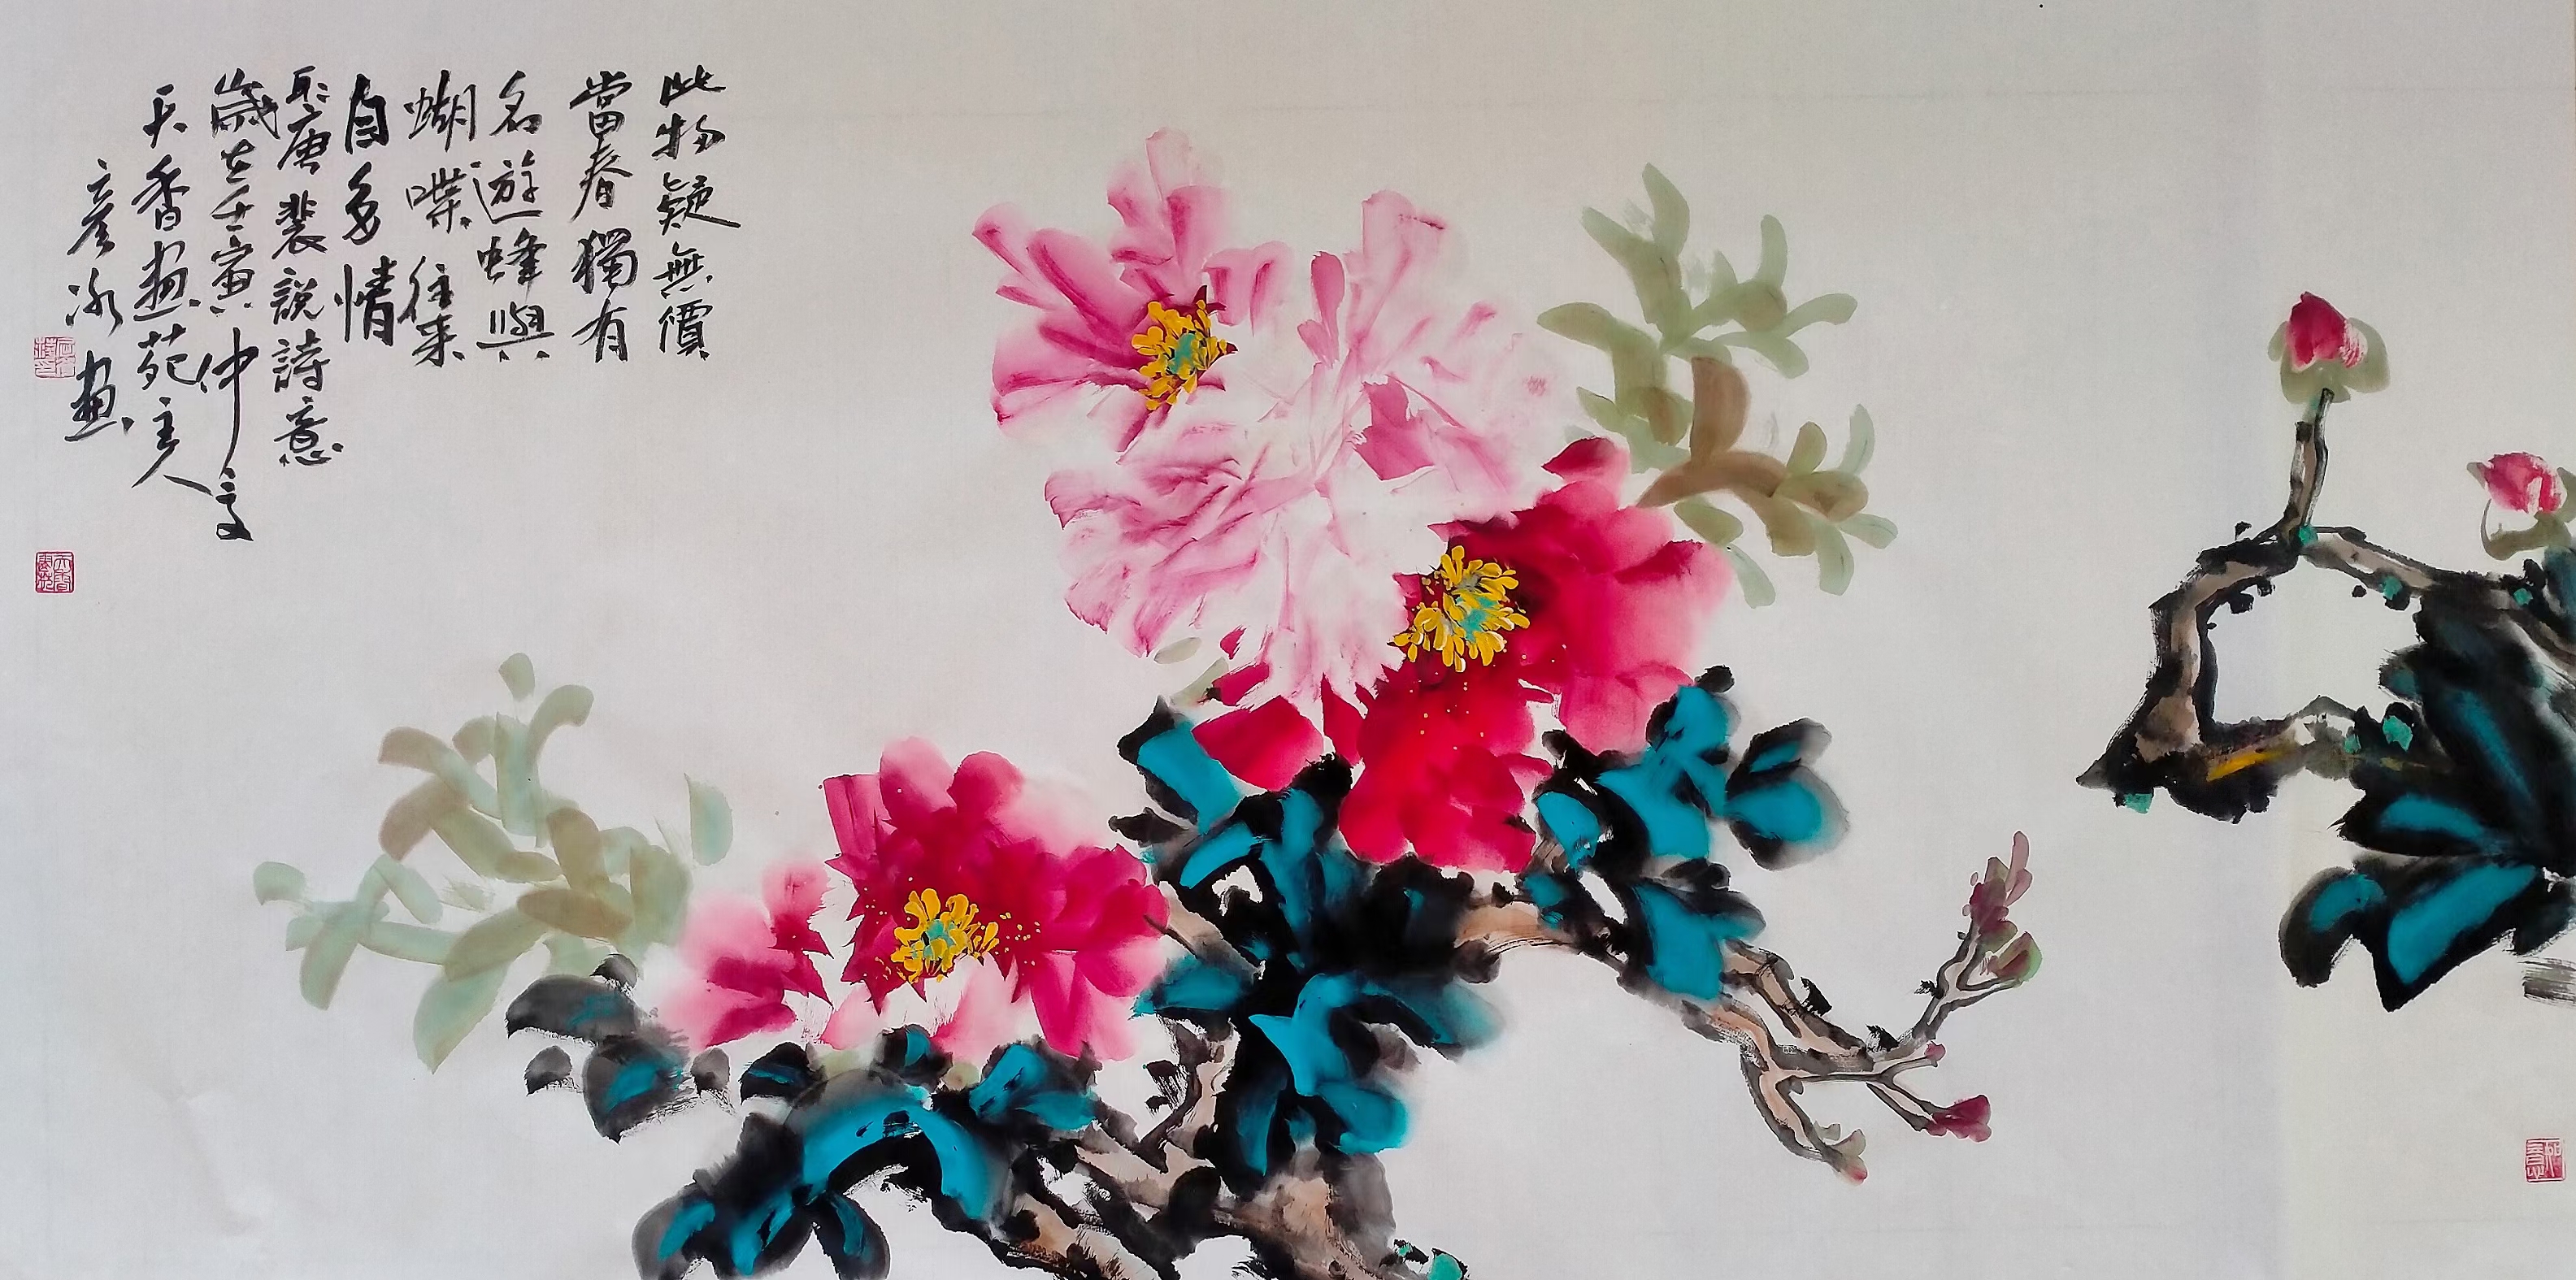 此物疑無價
當春獨有
名遊蜂與
蝴蝶往来
自多情
取唐裴說詩意
歲在壬寅仲夏
天香畫苑主人
彦冰畫